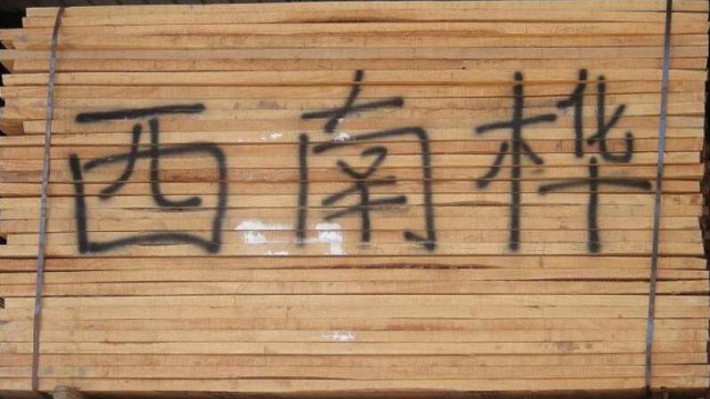 西南桦